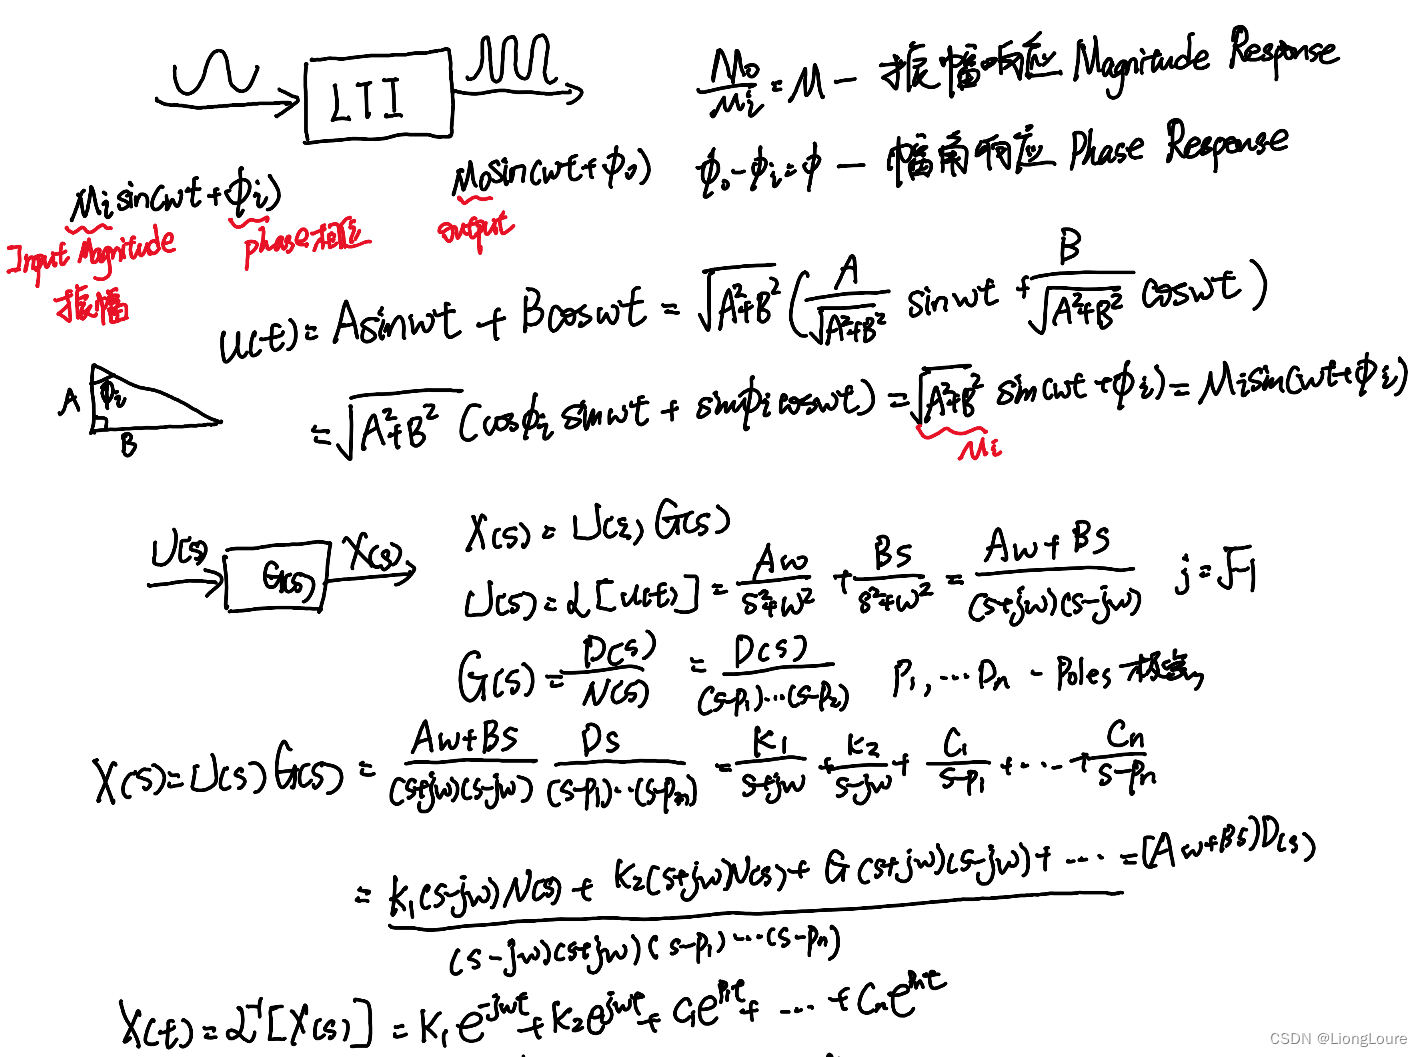 LTI
M₀/Mᵢ = M — 振幅响应 Magnitude Response
Mᵢ sin(ωt+ϕᵢ)
M₀ sin(ωt+ϕ₀)
ϕ₀-ϕᵢ=ϕ — 幅角响应 Phase Response
Input Magnitude
振幅
phase 相位
output
u(t) = A sinωt + B cosωt = √(A²+B²) ( A/√(A²+B²) sinωt + B/√(A²+B²) cosωt )
A ϕᵢ B
= √(A²+B²) (cosϕᵢ sinωt + sinϕᵢ cosωt) = √(A²+B²) sin(ωt+ϕᵢ) = Mᵢ sin(ωt+ϕᵢ)
Mᵢ
U(s) G(s) X(s)
X(s) = U(s) G(s)
U(s) = ℒ[u(t)] = Aω/(s²+ω²) + Bs/(s²+ω²) = (Aω+Bs)/((s+jω)(s-jω)) j=√-1
G(s) = D(s)/N(s) = D(s)/((s-p₁)···(s-p₂)) P₁, ··· Pn - Poles 极点
X(s) = U(s) G(s) = (Aω+Bs)/((s+jω)(s-jω)) Ds/((s-p₁)···(s-pn)) = K₁/(s+jω) + K₂/(s-jω) + C₁/(s-p₁) + ··· + Cn/(s-pn)
= (K₁(s-jω)N(s) + K₂(s+jω)N(s) + C₁(s+jω)(s-jω) + ···)/((s-jω)(s+jω)(s-p₁)···(s-pn)) = (Aω+Bs)D(s)
X(t) = ℒ⁻¹[X(s)] = K₁e^(-jωt) + K₂e^(jωt) + C₁e^(p₁t) + ··· + Cne^(pnt)
CSDN @LiongLoure